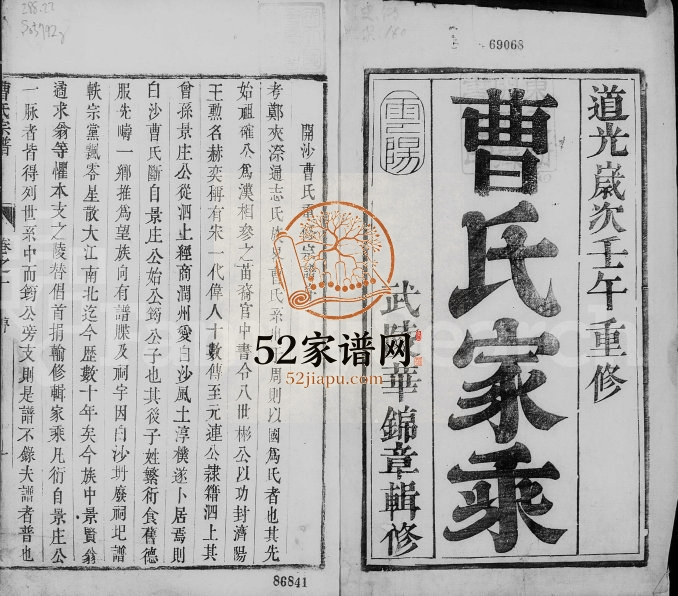 69068
道光歲次壬午重修
曹氏家乘
雲陽
武陵華錦章輯修
52家谱网
52jiapu.com
開沙曹氏重修宗譜
考鄭夾漈通志氏族曹氏系出周則以國爲氏者也其先
始祖確公爲漢相參之苗裔官中書令八世彬公以功封濟陽
王勲名赫奕稱有宋一代偉人十數傳至元連公隷籍泗上其
曾孫景庄公從泗上經商潤州愛白沙風土淳樸遂卜居焉則
白沙曹氏斷自景庄公始公筠公子也其後子姓繁衍食舊德
服先疇一鄉推爲望族向有譜牒及祠宇因白沙坍廢祠圮譜
軼宗黨飄零星散大江南北迄今歷數十年矣今族中景賢翁
適求翁等懼本支之陵替倡首捐輸修輯家乘凡衍自景庄公
一脉者皆得列世系中而筠公旁支則是譜不錄夫譜者普也
曹氏宗譜
卷之一
86841